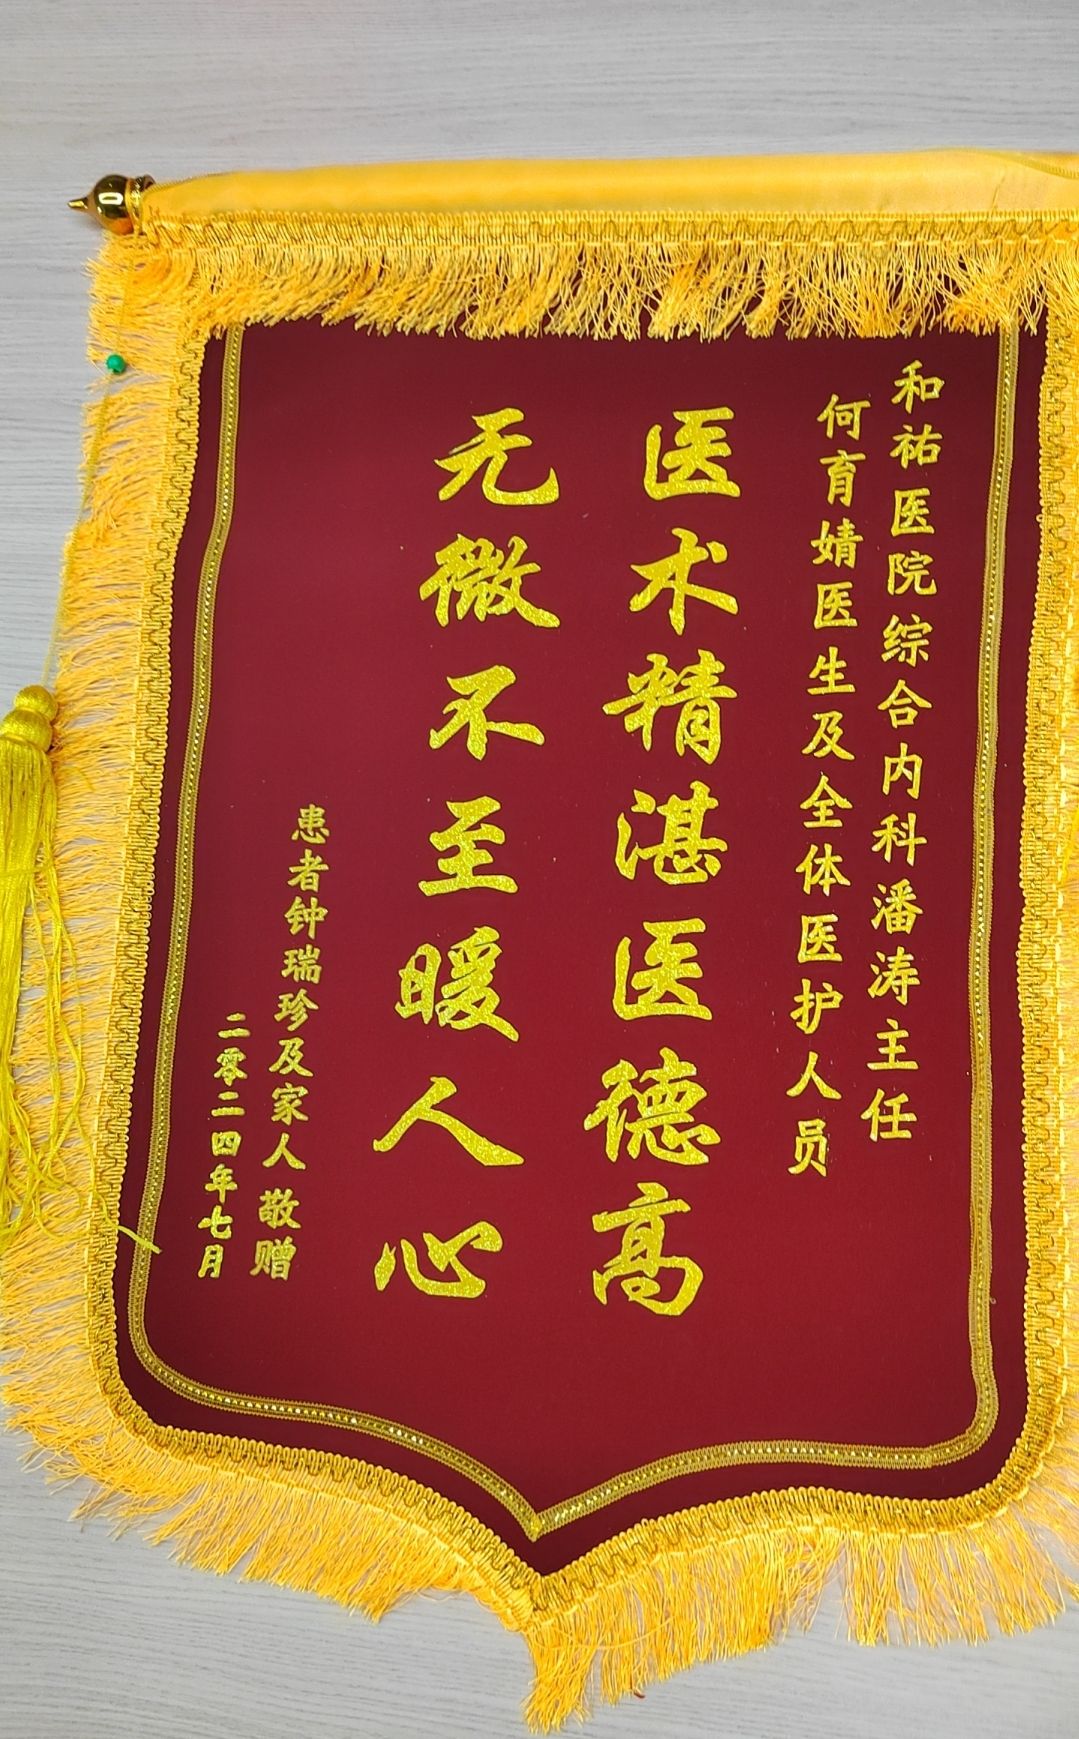 和祐医院综合内科潘涛主任
何育婧医生及全体医护人员
医术精湛医德高
无微不至暖人心
患者钟瑞珍及家人 敬赠
二零二四年七月